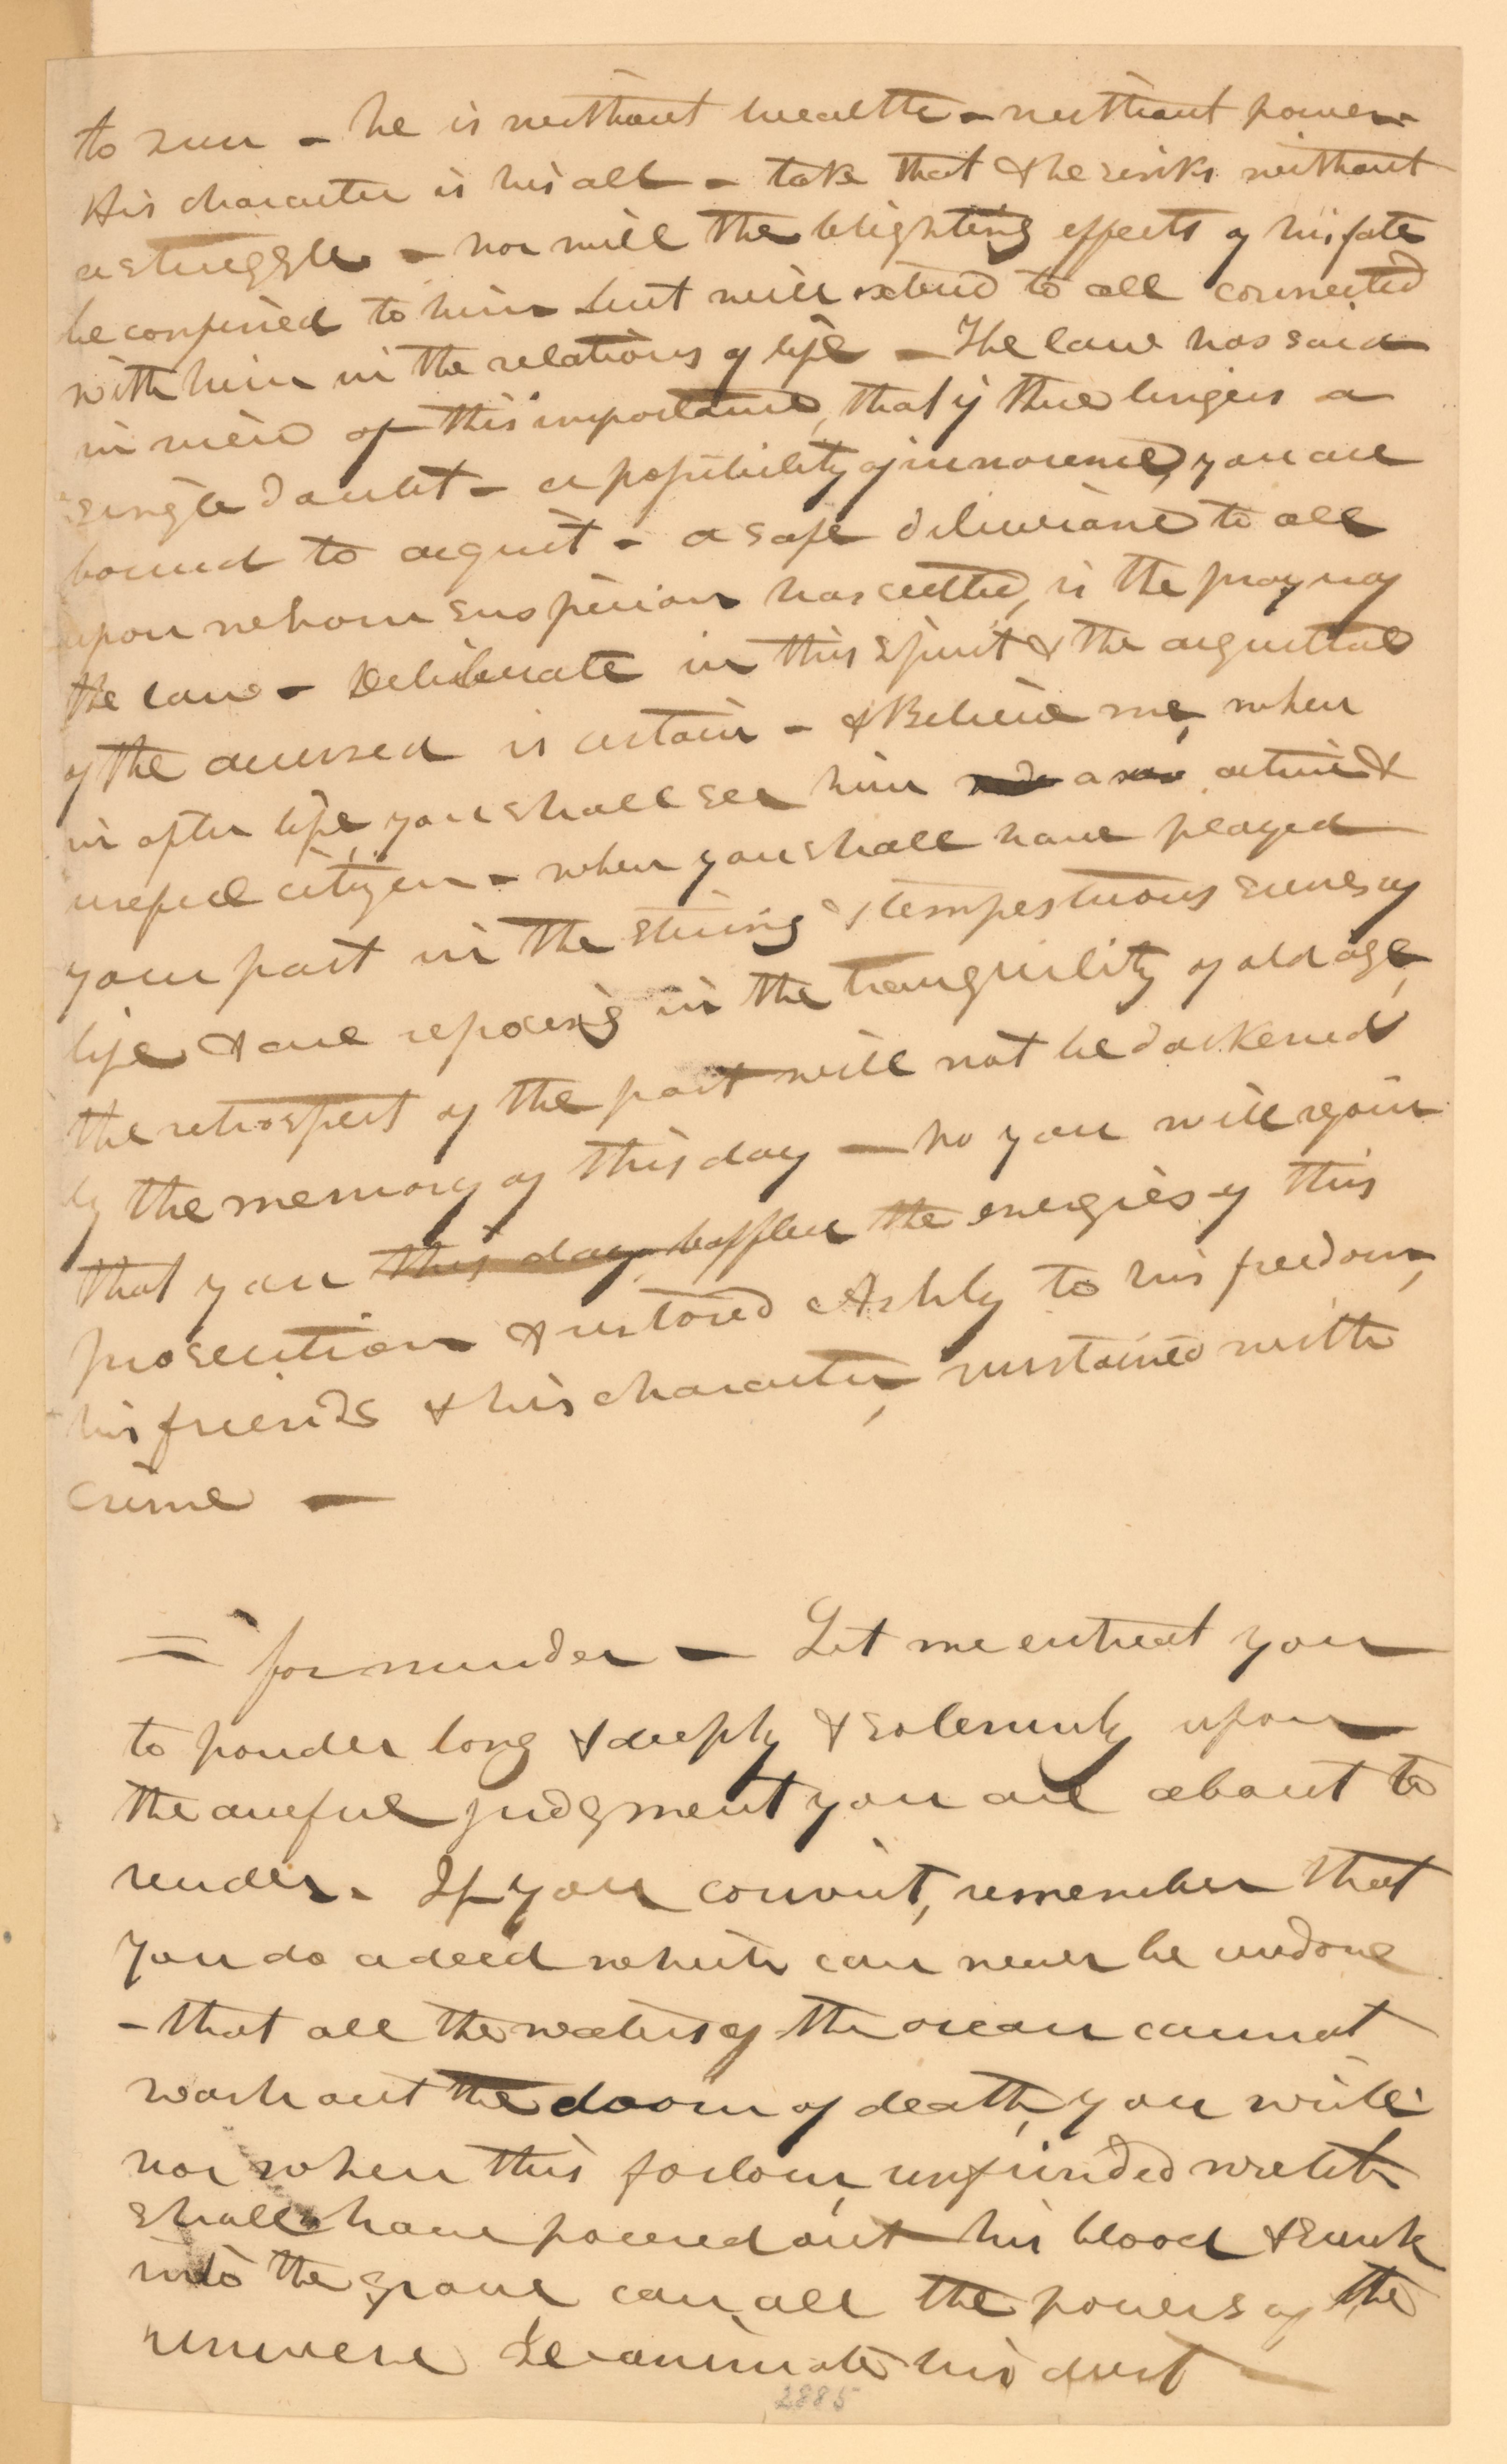 to ruin - he is without wealth - without power -
His character is his all - take that & he sinks without
a struggle - nor will the blighting effects of his fate
be confined to him but will extend to all connected
with him in the relations of life - The law has said
in view of this importance, that if there lingers a
single doubt - a possibility of innocence, you are
bound to acquit - a safe deliverance to all
upon whom suspicion has settled, is the prayer of
the law - Deliberate in this spirit & the acquittal
of the accused is certain - & Believe me, when
in after life, you shall see him a active &
useful citizen - when you shall have played
your part in the stiring & tempestuous scenes of
life & are reposeing in the tranquility of old age,
the retrospect of the past will not be darkened
by the memory of this day - no you will rejoice
that you this day baffled the energies of this
prosecution & restored Ashby to his freedom,
his friends & his character, unstained with
crime -
= for murder - Let me entreat you
to ponder long & deeply & solemnly upon
the awful judgment you are about to
render. If you convict, remember that
you do a deed which can never be undone
- that all the waters of the ocean cannot
wash out the doom of death, you write
nor when this forlorn, unfriended wretch
shall have poured out his blood & sunk
into the grave can all the powers of the
universe Re-animate his dust -
2885